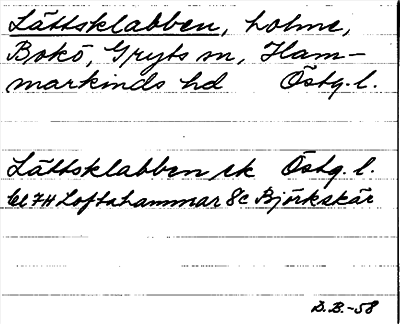 Lättsklabben, holme,
Bokö, Gryts sn, Ham-
markinds hd Östg. l.
Lättsklabben rk Östg. l.
bl 74 Loftahammar 8c Björkskär
D.B.-58